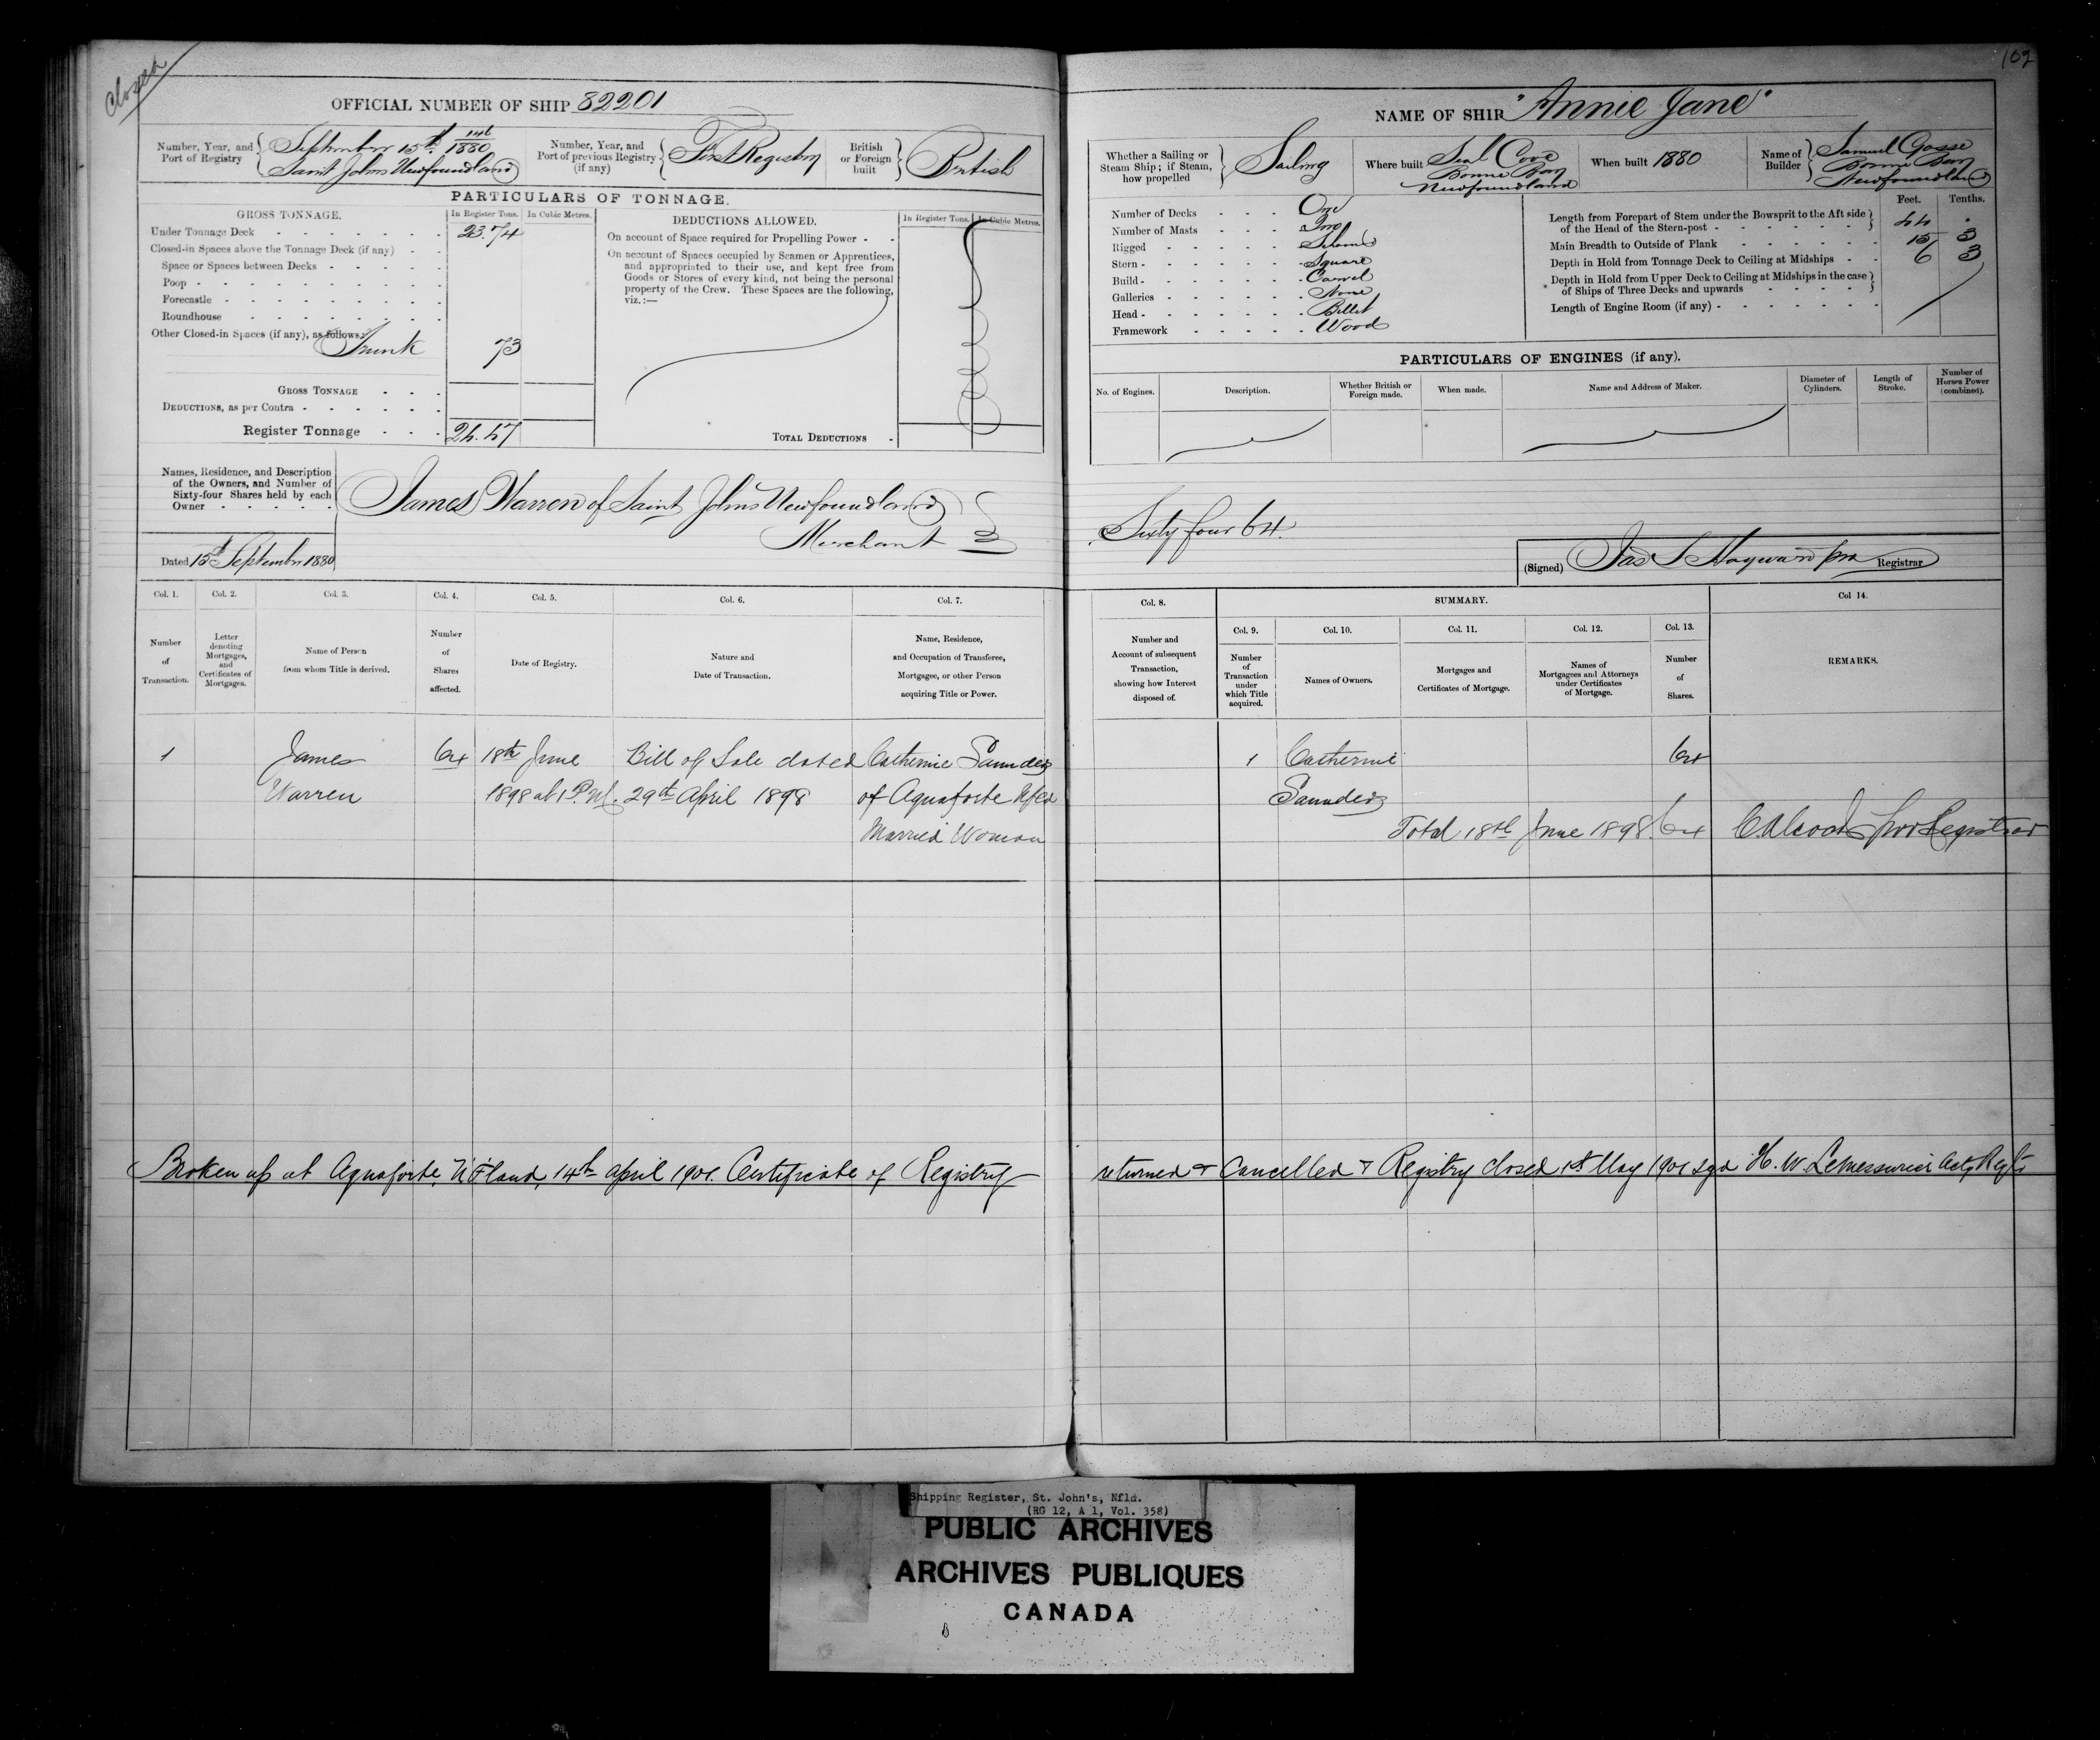 Closed
109
OFFICIAL NUMBER OF SHIP 82201
Number, Year, and Port of Registry
September 15th 146/1880
Saint Johns Newfoundland
Number, Year, and Port of previous Registry (if any)
First Registry
British or Foreign built
British
PARTICULARS OF TONNAGE.
GROSS TONNAGE.
In Register Tons.
In Cubic Metres.
Under Tonnage Deck 23.74
Closed-in Spaces above the Tonnage Deck (if any)
Space or Spaces between Decks
Poop
Forecastle
Roundhouse
Other Closed-in Spaces (if any), as follows:
Trunk 73
GROSS TONNAGE
DEDUCTIONS, as per Contra
Register Tonnage 24.47
DEDUCTIONS ALLOWED.
In Register Tons.
In Cubic Metres.
On account of Space required for Propelling Power
On account of Spaces occupied by Seamen or Apprentices,
and appropriated to their use, and kept free from
Goods or Stores of every kind, not being the personal
property of the Crew. These Spaces are the following,
viz.:—
TOTAL DEDUCTIONS
Names, Residence, and Description
of the Owners, and Number of
Sixty-four Shares held by each
Owner
James Warren of Saint Johns Newfoundland
Merchant
Dated 15th September 1880
Col. 1. Col. 2. Col. 3. Col. 4. Col. 5. Col. 6. Col. 7.
Number of Transaction.
Letter denoting Mortgages, and Certificates of Mortgages.
Name of Person from whom Title is derived.
Number of Shares affected.
Date of Registry.
Nature and Date of Transaction.
Name, Residence, and Occupation of Transferee, Mortgagee, or other Person acquiring Title or Power.
1 James 64 18th June Bill of Sale dated Catherine Saunders
Warren 1898 at 1 P.M. 29th April 1898 of Aquaforte Nfld
Married Woman
Broken up at Aquaforte N'F'land, 14th April 1901. Certificate of Registry
NAME OF SHIP "Annie Jane"
Whether a Sailing or Steam Ship; if Steam, how propelled
Sailing
Where built
Seal Cove
Bonne Bay
Newfoundland
When built 1880
Name of Builder
Samuel Gosse
Bonne Bay
Newfoundland
Number of Decks One
Number of Masts Two
Rigged Schooner
Stern Square
Build Carvel
Galleries None
Head Billet
Framework Wood
Feet. Tenths.
Length from Forepart of Stem under the Bowsprit to the Aft side
of the Head of the Stern-post 44 .
Main Breadth to Outside of Plank 15 3
Depth in Hold from Tonnage Deck to Ceiling at Midships 6 3
Depth in Hold from Upper Deck to Ceiling at Midships in the case
of Ships of Three Decks and upwards
Length of Engine Room (if any)
PARTICULARS OF ENGINES (if any).
No. of Engines.
Description.
Whether British or Foreign made.
When made.
Name and Address of Maker.
Diameter of Cylinders.
Length of Stroke.
Number of Horses Power (combined).
Sixty four 64.
(Signed) Jas S Hayward pro Registrar
Col. 8. SUMMARY. Col 14.
Col. 9. Col. 10. Col. 11. Col. 12. Col. 13.
Number and Account of subsequent Transaction, showing how Interest disposed of.
Number of Transaction under which Title acquired.
Names of Owners.
Mortgages and Certificates of Mortgage.
Names of Mortgagees and Attorneys under Certificates of Mortgage.
Number of Shares.
REMARKS.
1 Catherine 64
Saunders
Total 18th June 1898. 64 pro Registrar
returned & Cancelled & Registry closed 1st May 1901 sgd H. W. LeMessurier Actg Regtr
Shipping Register, St. John's, Nfld.
(RG 12, A 1, Vol. 358)
PUBLIC ARCHIVES
ARCHIVES PUBLIQUES
CANADA